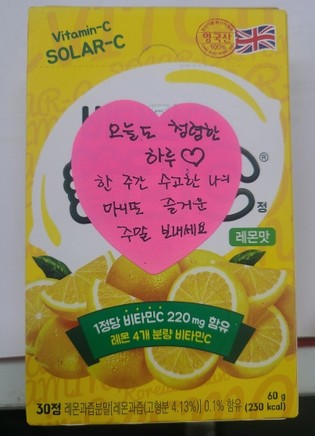 Vitamin-C
SOLAR-C
영국산
100%
®
오늘도 청렴한
하루♡
한 주간 수고한 나의
마니또 즐거운
주말 보내세요
정
레몬맛
1정당 비타민C 220mg 함유
레몬 4개 분량 비타민C
60 g
30정 레몬과즙분말[레몬과즙(고형분 4.13%)] 0.1% 함유 (230 kcal)